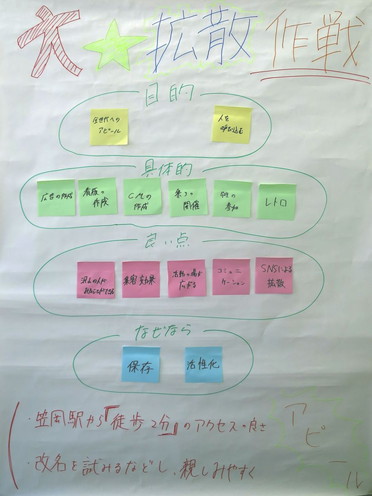 大☆拡散作戦
目的
全世代へのアピール
人を呼び込む
具体的
広告の作成
看板の作成
CMの作成
祭りの開催
レトロ
良い点
集客効果
コミュニケーション
SNSによる拡散
なぜなら
保存
活性化
・笠岡駅から『徒歩2分』のアクセスの良さ
・改名を試みるなどし、親しみやすく
アピール